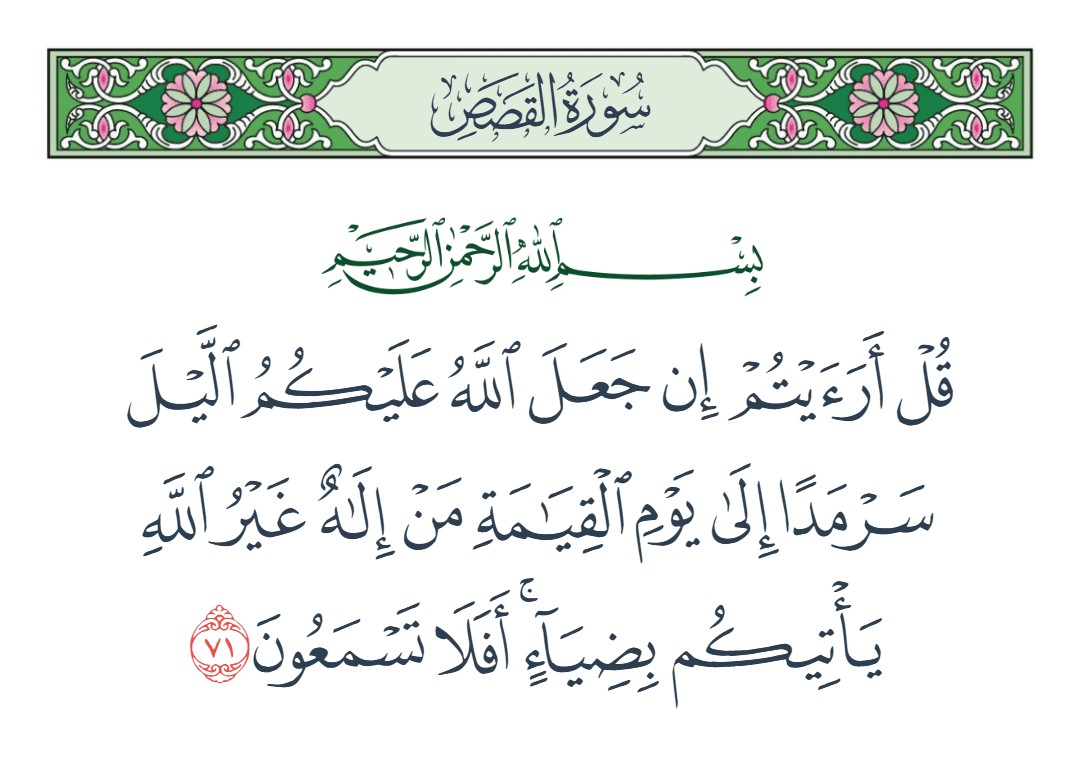 سُورَةُ القَصَصِ
بِسْمِ ٱللَّهِ ٱلرَّحْمَٰنِ ٱلرَّحِيمِ
قُلْ أَرَءَيْتُمْ إِن جَعَلَ ٱللَّهُ عَلَيْكُمُ ٱلَّيْلَ
سَرْمَدًا إِلَىٰ يَوْمِ ٱلْقِيَٰمَةِ مَنْ إِلَٰهٌ غَيْرُ ٱللَّهِ
يَأْتِيكُم بِضِيَآءٍ ۚ أَفَلَا تَسْمَعُونَ ٧١